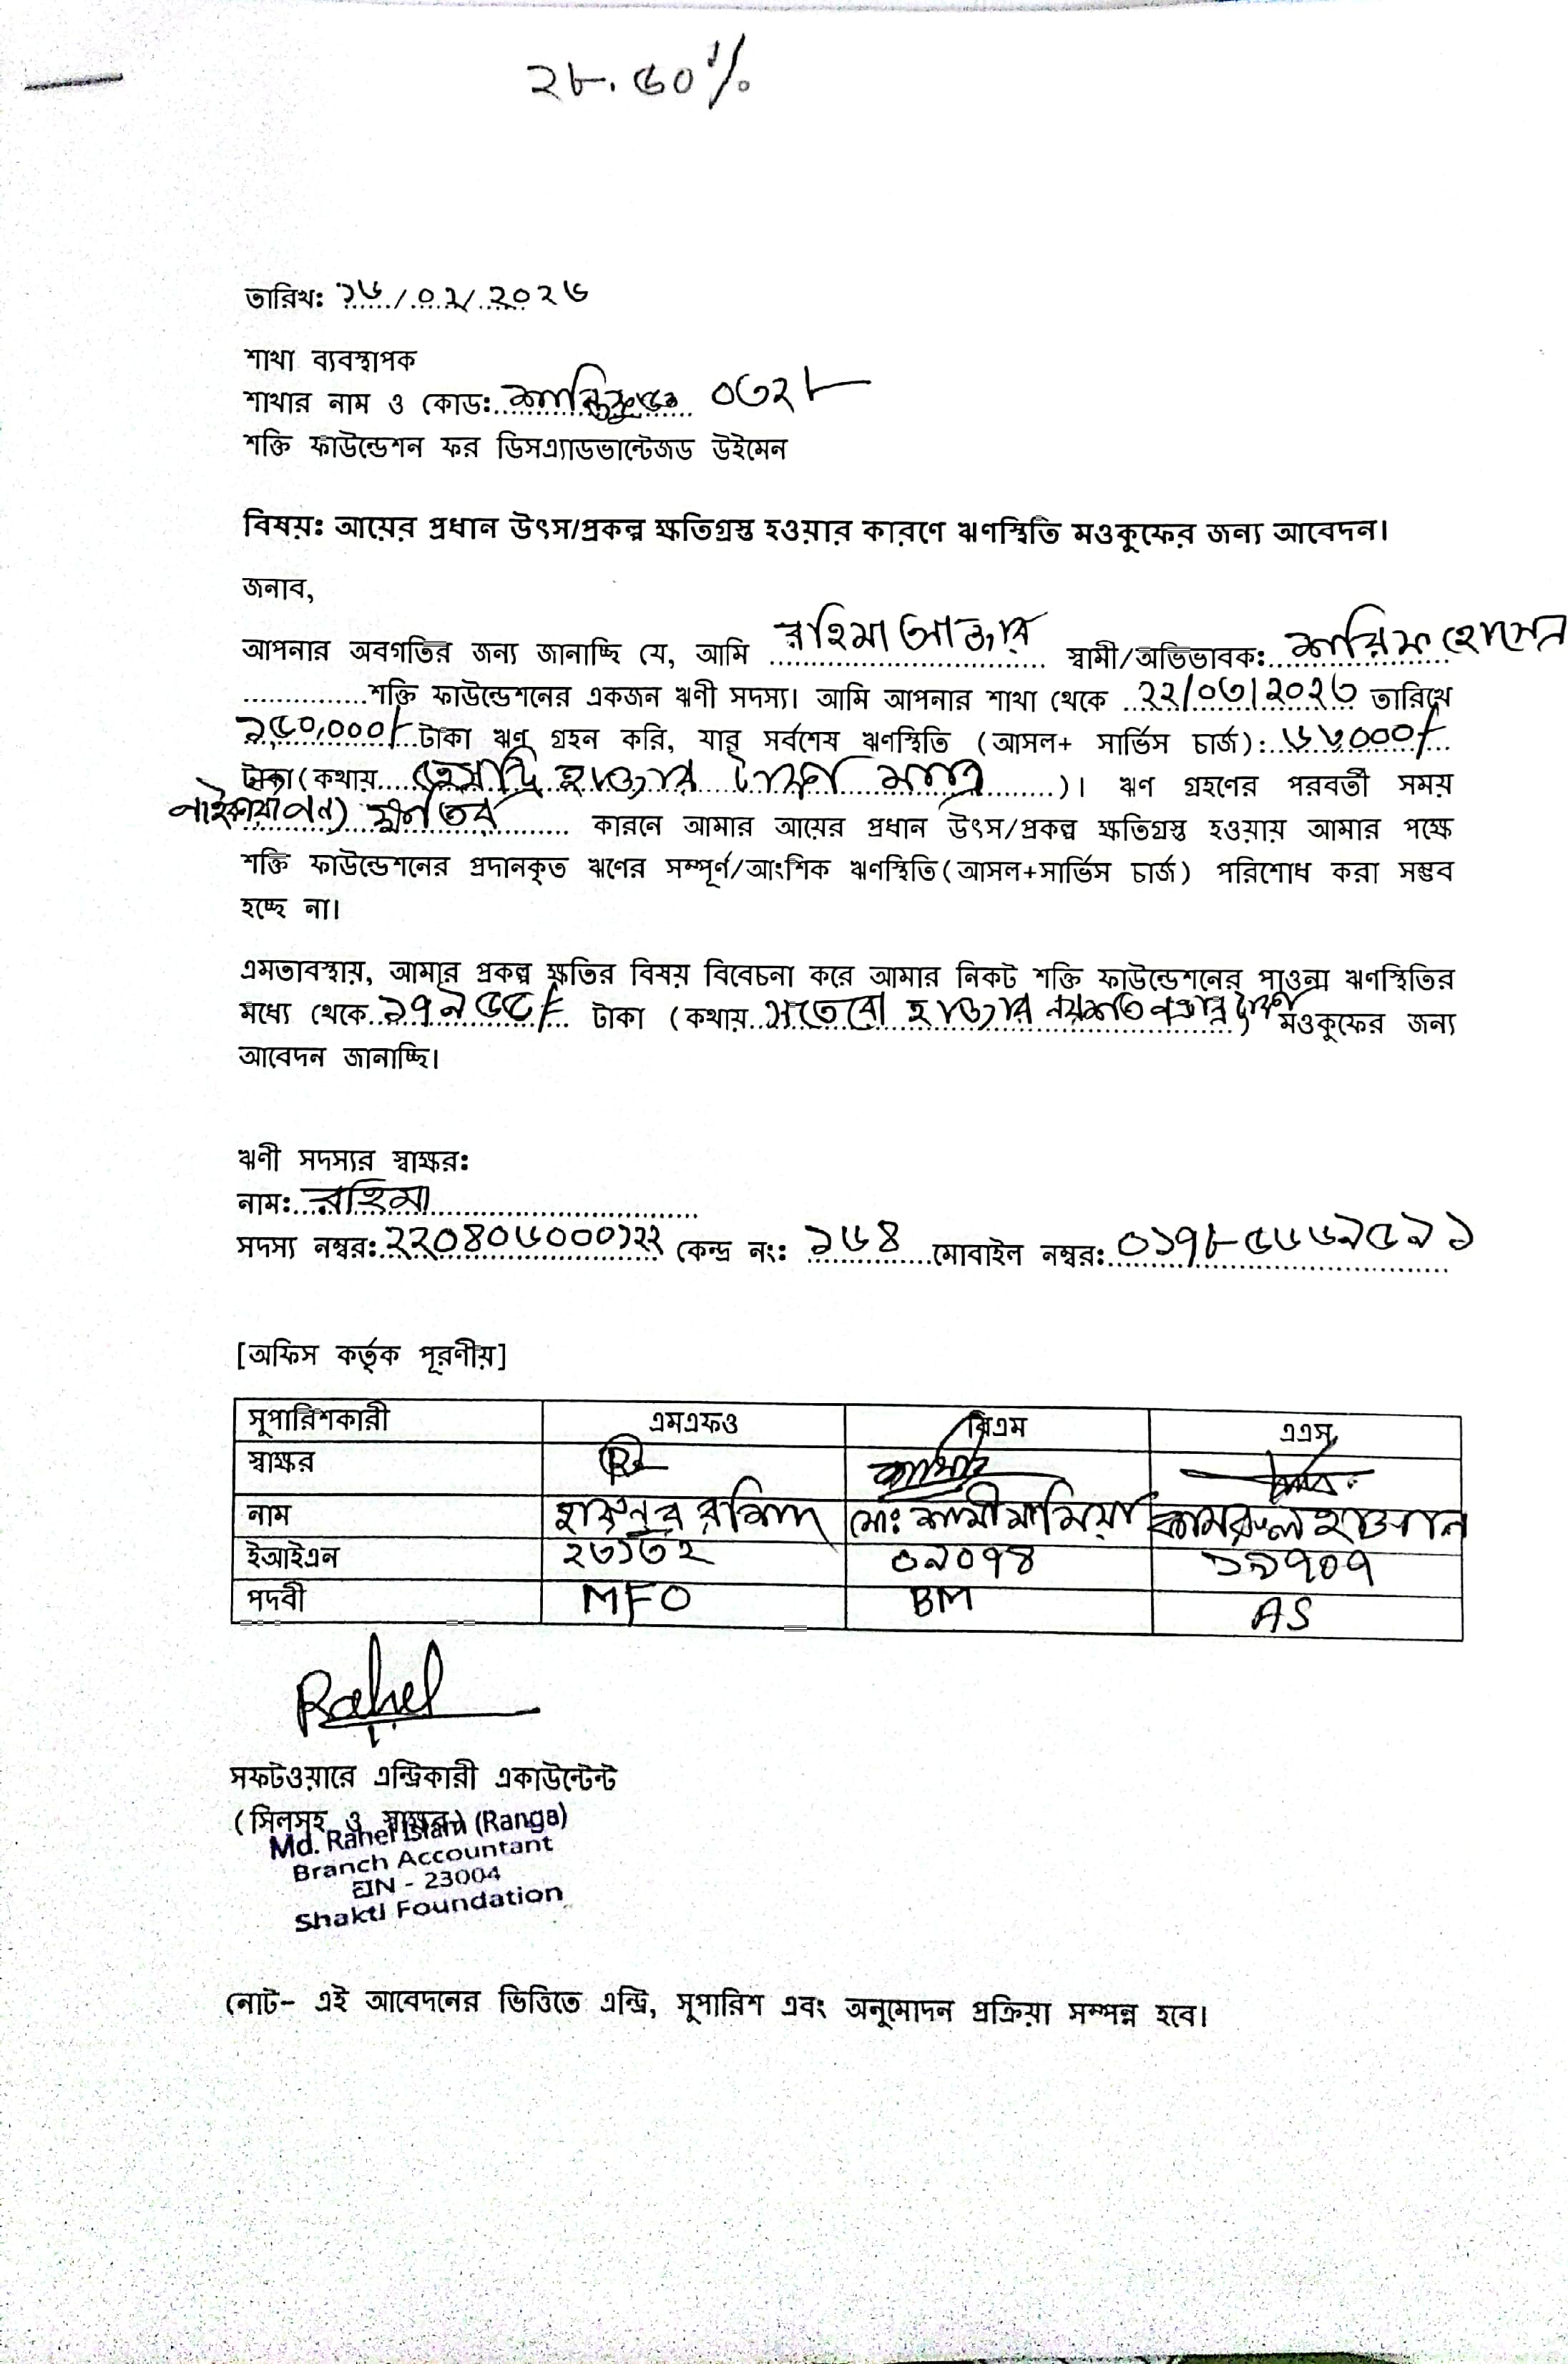 ২৮.৫০%
তারিখ: ১৬/০২/২০২৬
শাখা ব্যবস্থাপক
শাখার নাম ও কোড: ০৩২৮
শক্তি ফাউন্ডেশন ফর ডিসএ্যাডভান্টেজড উইমেন
বিষয়: আয়ের প্রধান উৎস/প্রকল্প ক্ষতিগ্রস্ত হওয়ার কারণে ঋণস্থিতি মওকুফের জন্য আবেদন।
জনাব,
আপনার অবগতির জন্য জানাচ্ছি যে, আমি রহিমা আক্তার স্বামী/অভিভাবক: শারিফ হোসেন
শক্তি ফাউন্ডেশনের একজন ঋণী সদস্য। আমি আপনার শাখা থেকে ২২/০৩/২০২৩ তারিখে
১৫০,০০০/- টাকা ঋণ গ্রহন করি, যার সর্বশেষ ঋণস্থিতি (আসল+ সার্ভিস চার্জ): ৬৩০০০/-
টাকা (কথায় তেষট্টি হাজার টাকা মাত্র)। ঋণ গ্রহণের পরবর্তী সময়
ক্ষতির কারনে আমার আয়ের প্রধান উৎস/প্রকল্প ক্ষতিগ্রস্ত হওয়ায় আমার পক্ষে
শক্তি ফাউন্ডেশনের প্রদানকৃত ঋণের সম্পূর্ণ/আংশিক ঋণস্থিতি(আসল+সার্ভিস চার্জ) পরিশোধ করা সম্ভব
হচ্ছে না।
এমতাবস্থায়, আমার প্রকল্প ক্ষতির বিষয় বিবেচনা করে আমার নিকট শক্তি ফাউন্ডেশনের পাওনা ঋণস্থিতির
মধ্যে থেকে ১৭৯৫৫/- টাকা (কথায় সতেরো হাজার নয়শত পঞ্চান্ন টাকা) মওকুফের জন্য
আবেদন জানাচ্ছি।
ঋণী সদস্যর স্বাক্ষর:
নাম: রহিমা
সদস্য নম্বর: ২২০৪০৬০০০১২২ কেন্দ্র নং: ১৬৪ মোবাইল নম্বর: ০১৭৮৫৬৬৯৫৯১
[অফিস কর্তৃক পূরণীয়]
সুপারিশকারী এমএফও বিএম এএস
স্বাক্ষর
নাম হারুনুর রশিদ মো: শামীম মিয়া কামরুল হাসান
ইআইএন ২৩১৩২ ০৯০৭৪ ১৯৭০৭
পদবী MFO BM AS
Rahel
সফটওয়ারে এন্ট্রিকারী একাউন্টেন্ট
(সিলসহ ও স্বাক্ষর)
Md. Rahel Islam (Ranga)
Branch Accountant
EIN - 23004
Shakti Foundation
নোট- এই আবেদনের ভিত্তিতে এন্ট্রি, সুপারিশ এবং অনুমোদন প্রক্রিয়া সম্পন্ন হবে।